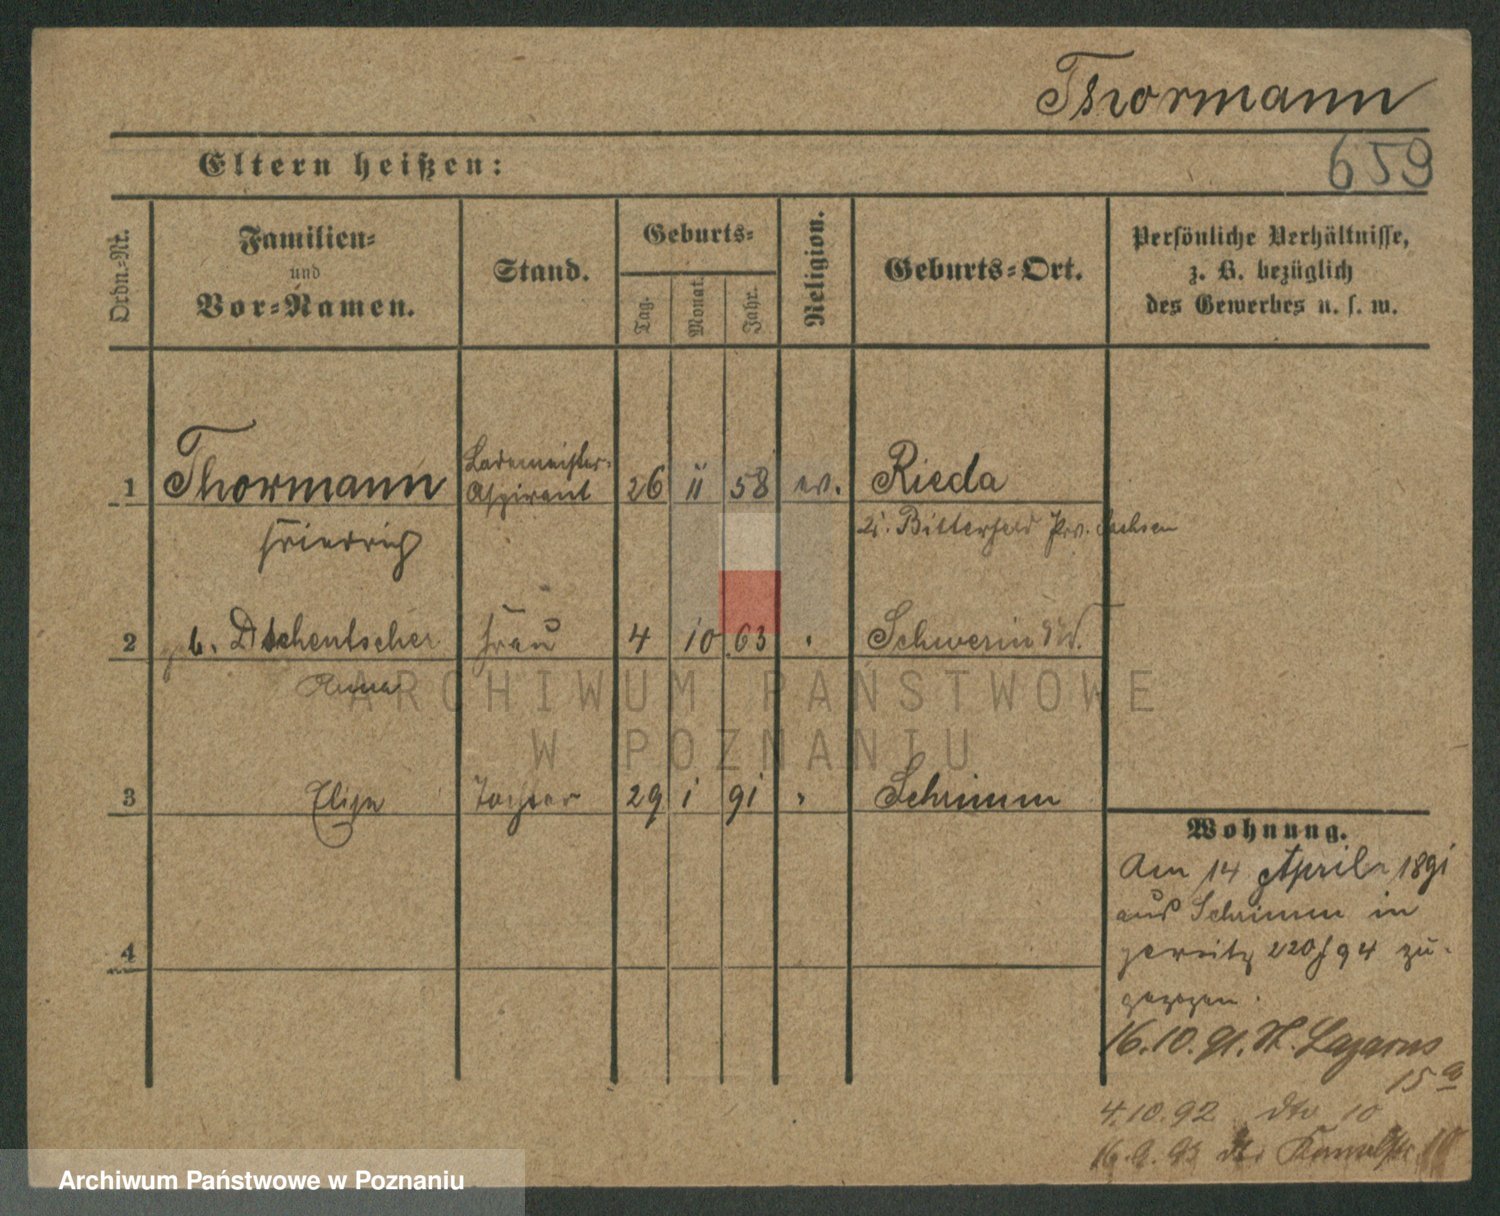 Thormann
659
Eltern heißen:
Ordn.-Nr.
Familien-
und
Vor-Namen.
Stand.
Geburts-
Tag.
Monat.
Jahr.
Religion.
Geburts-Ort.
Persönliche Verhältnisse,
z. B. bezüglich
des Gewerbes u. s. w.
1 Thormann Lademeister-Aspirant 26 11 58 ev. Rieda
Friedrich Bitterfeld Prv. Sachsen
2 geb. Frau 4 10 63 Schwerin
Anna
3 Tochter 29 1 91 Schrimm
4
Wohnung.
Am 14 April 1891
aus Schrimm in
Jersitz 220/94 zu-
gezogen.
16.10.91. St. Lazarus
15a
4.10.92 dto 10
ARCHIWUM PAŃSTWOWE
W POZNANIU
Archiwum Państwowe w Poznaniu